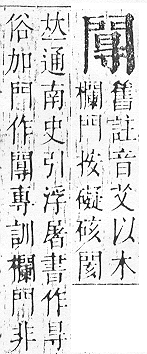 舊註音艾以木
欄門按礙硋閡
𠀤通南史引浮屠書作㝵
俗加門作專訓欄門非